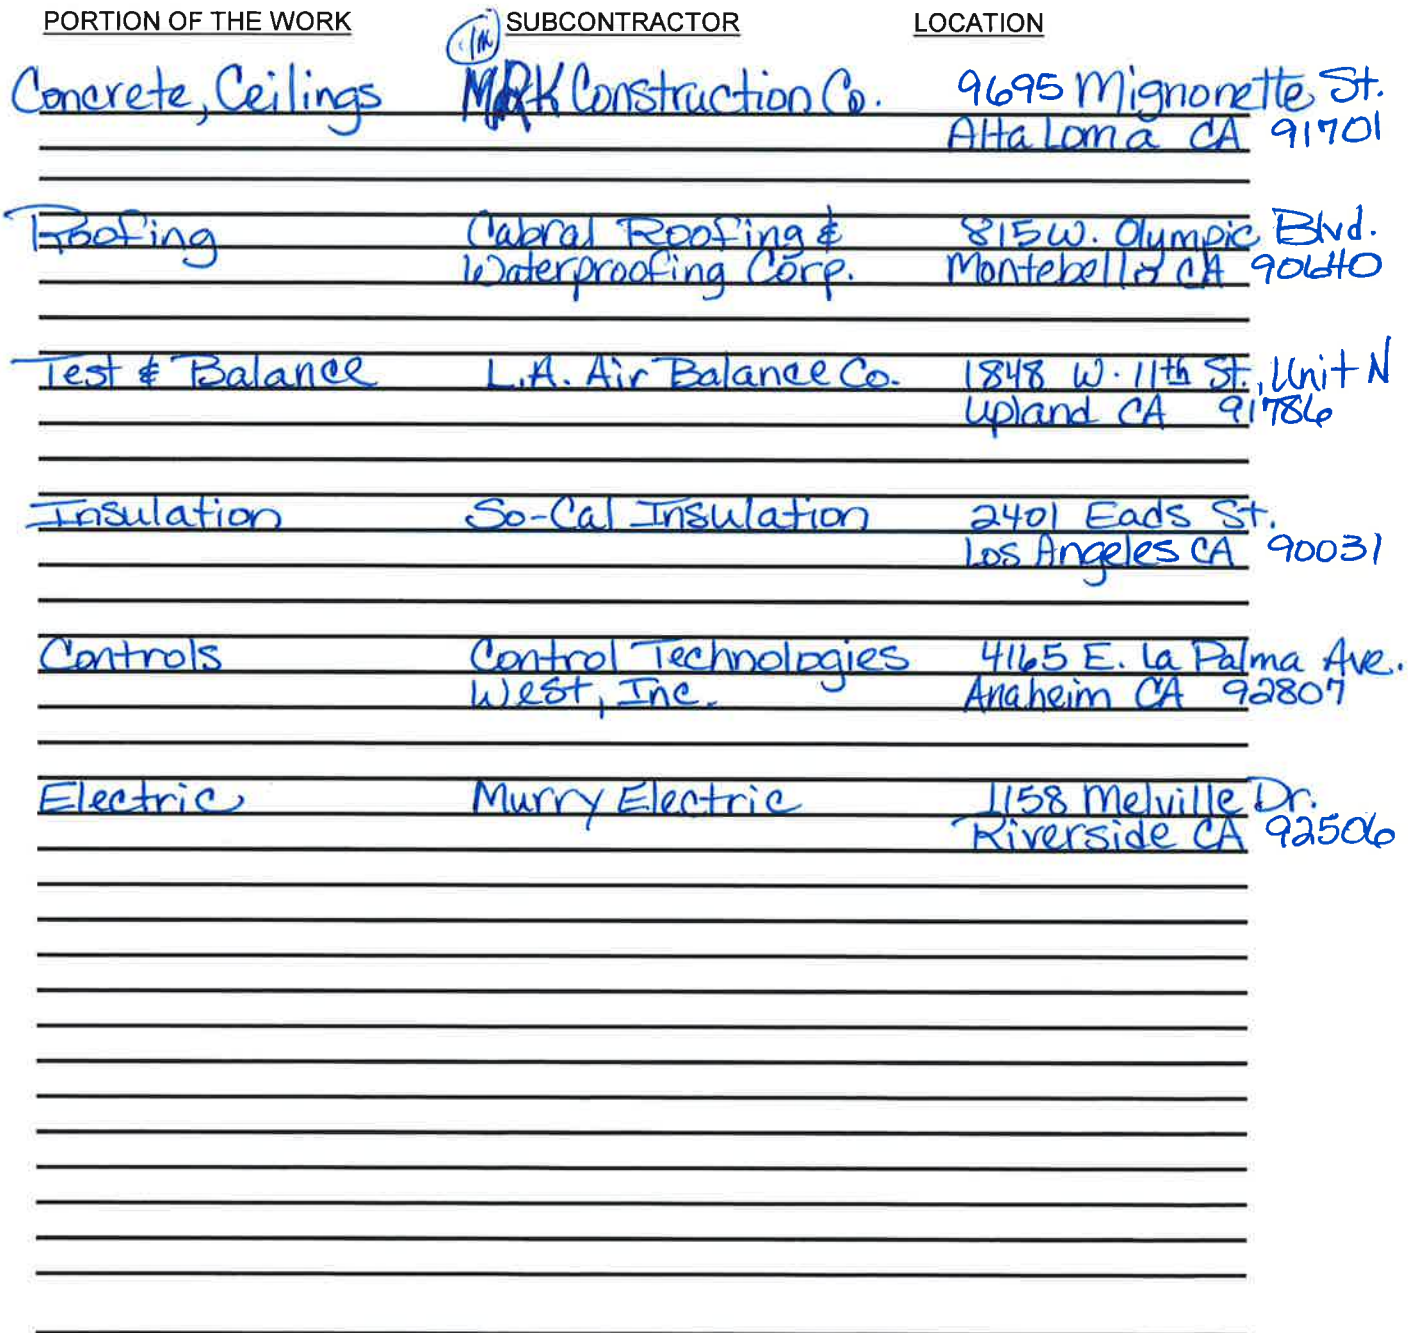 PORTION OF THE WORK SUBCONTRACTOR LOCATION
Concrete, Ceilings Construction Co. 9695 Mignonette St.
Alta Loma CA 91701
Roofing Cabral Roofing & 815 W. Olympic Blvd.
Waterproofing Corp. Montebello CA 90640
Test & Balance L.A. Air Balance Co. 1848 W. 11th St., Unit N
Upland CA 91786
Insulation So-Cal Insulation 2401 Eads St.
Los Angeles CA 90031
Controls Control Technologies 4165 E. La Palma Ave.
West, Inc. Anaheim CA 92807
Electric Murry Electric 1158 Melville Dr.
Riverside CA 92506